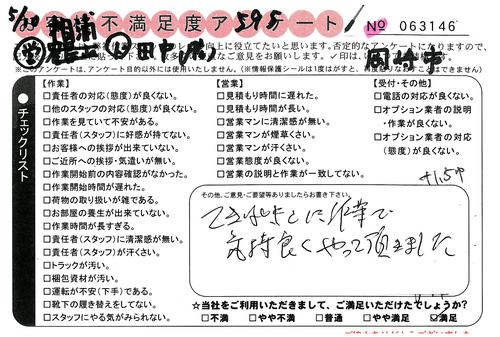 5/30
お客様不満足度アンケート 595
№ 063146
向上に役立てたいと思います。否定的なアンケートになりますので、
ご意見をお願いします。✓印は、
※このアンケートは、アンケート目的以外には使用いたしません。(※情報保護シールは1度はがすと、
岡崎市
チェックリスト
【作業】
□責任者の対応(態度)が良くない。
□他のスタッフの対応(態度)が良くない。
□作業を見ていて不安がある。
□責任者(スタッフ)に好感が持てない。
□お客様への挨拶が出来ていない。
□ご近所への挨拶・気遣いが無い。
□作業開始前の内容確認がなかった。
□作業開始時間が遅れた。
□荷物の取り扱いが雑である。
□お部屋の養生が出来ていない。
□作業時間が長すぎる。
□責任者(スタッフ)に清潔感が無い。
□責任者(スタッフ)が汗くさい。
□トラックが汚い。
□梱包資材が汚い。
□運転が不安(下手)である。
□靴下の履き替えをしてない。
□スタッフにやる気がみられない。
【営業】
□見積もり時間に遅れた。
□見積もり時間が長い。
□営業マンに清潔感が無い。
□営業マンが煙草くさい。
□営業マンが汗くさい。
□営業態度が良くない。
□営業の説明と作業が一致してない。
【受付・その他】
□電話の対応が良くない。
□オプション業者の説明
・作業が良くない。
□オプション業者の対応
(態度)が良くない。
その他、ご意見・ご要望等ありましたらお書き下さい。
てきぱきとに作業で
気持良くやって頂きました
☆当社をご利用いただきまして、ご満足いただけたでしょうか?
□不満 □やや不満 □普通 □やや満足 ☑満足